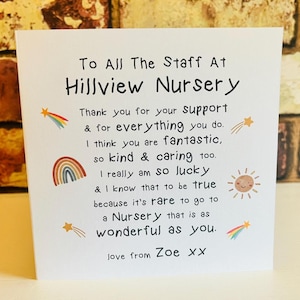 To All The Staff At
Hillview Nursery
Thank you for your support
& for everything you do.
I think you are fantastic,
so kind & caring too.
I really am so lucky
& I know that to be true
because it's rare to go to
a Nursery that is as
wonderful as you.
love from Zoe xx